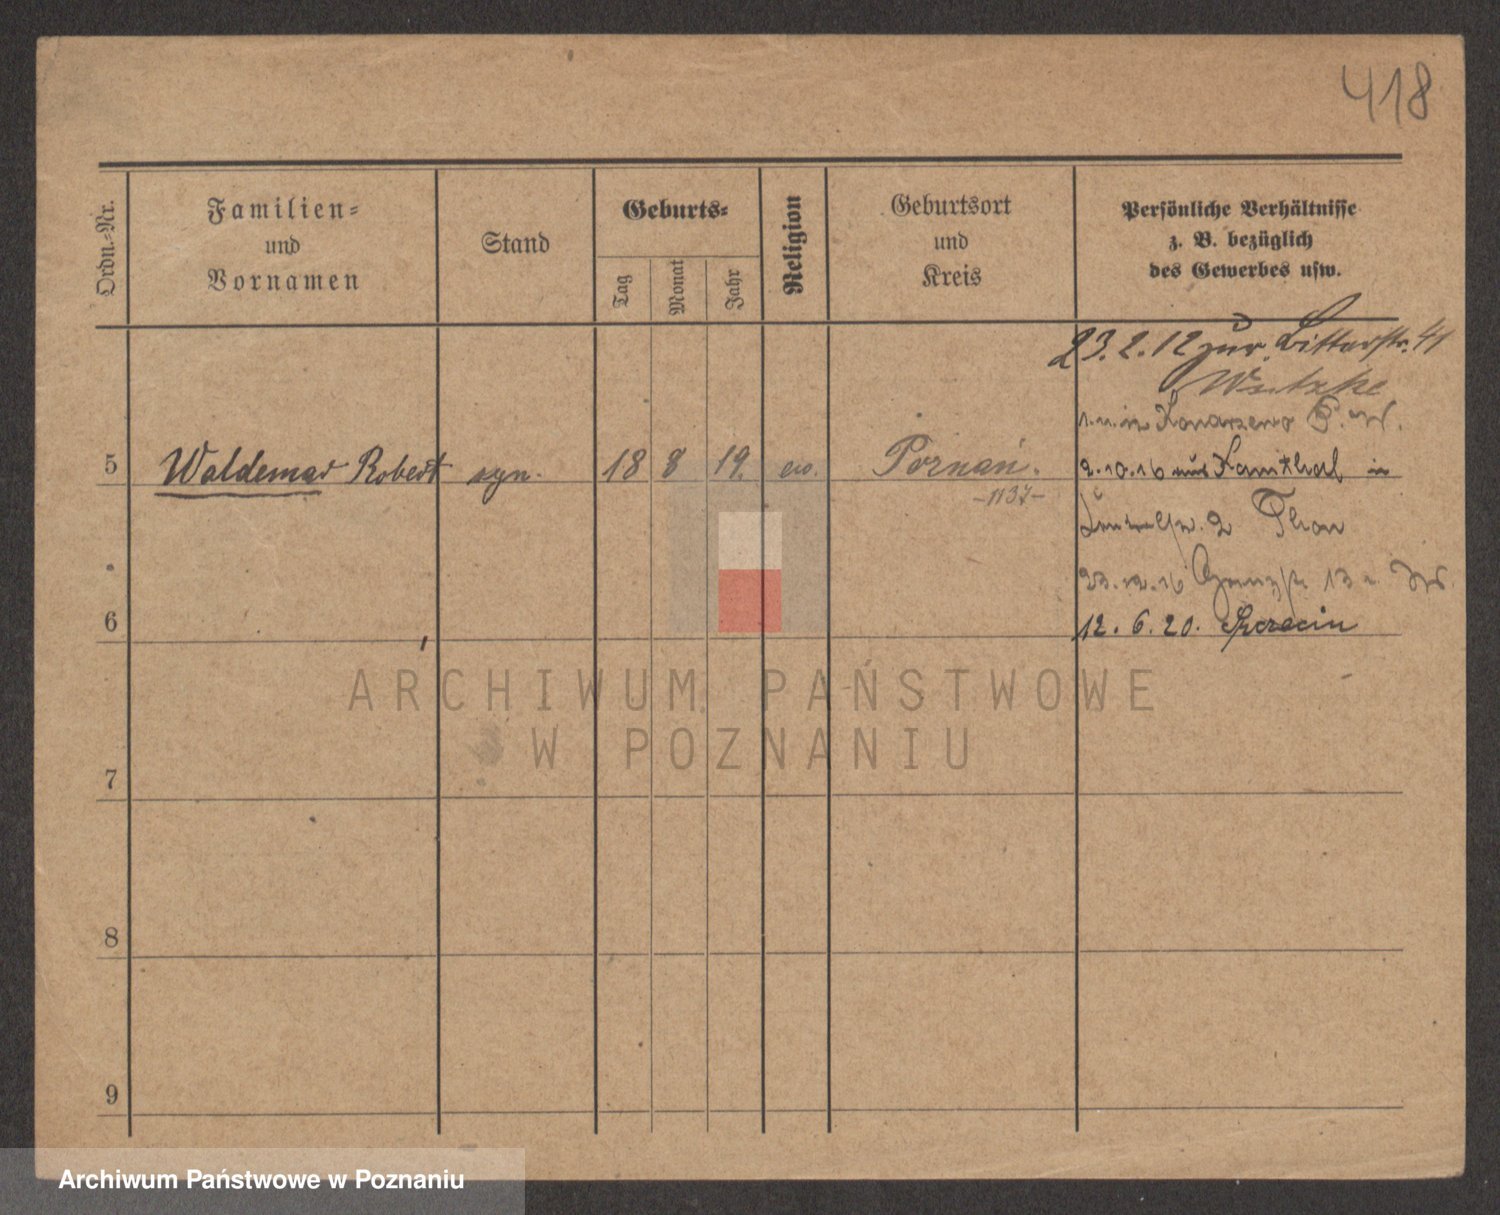 418
Ordn.-Nr.
Familien-
und
Vornamen
Stand
Geburts-
Tag
Monat
Jahr
Religion
Geburtsort
und
Kreis
Persönliche Verhältnisse
z. B. bezüglich
des Gewerbes usw.
23.2.12 zur. Ritterstr. 41
5 Waldemar Robert syn. 18 8 19. ew. Poznań.
-1137-
2.10.16 aus in
2
23.12.16 13
6
12.6.20. Szczecin
7
8
9
ARCHIWUM PAŃSTWOWE
W POZNANIU
Archiwum Państwowe w Poznaniu